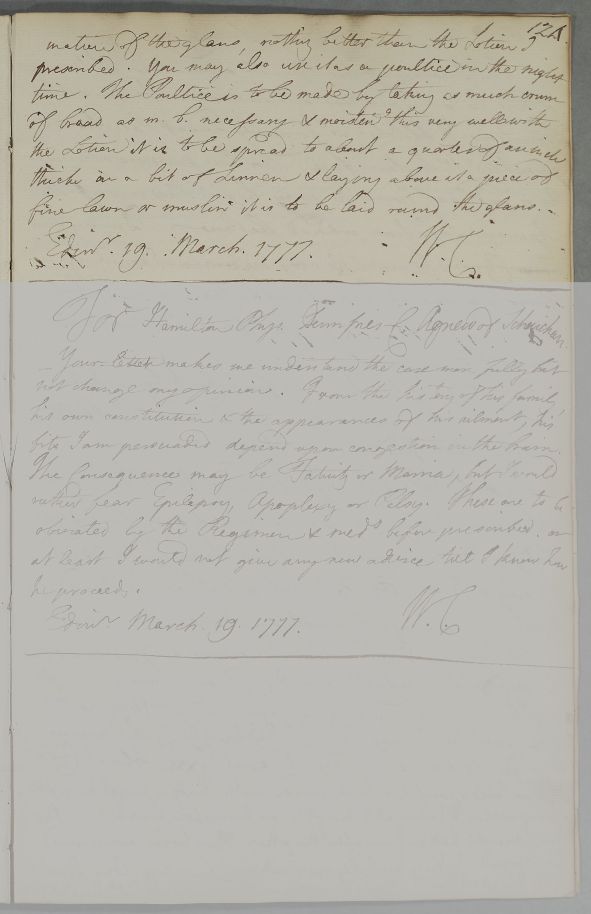 124.
mation of the glans, nothing better than the Lotion I
prescribed. You may also use it as a poultice in the night
time. The Poultice is to be made by taking as much crum
of bread as m. b. necessary & moisten^g this very well with
the Lotion it is to be spread to about a quarter of an inch
thick on a bit of Linnen & laying above it a piece of
fine lawn or muslin it is to be laid round the glans.
Edin^r. 19. March. 1777. W. C.
For Hamilton Phys. Dumfries f. Agnew of
Your Letter makes me understand the case more fully but
not change my opinion. From the history of his family,
his own constitution & the appearances of his ailment, his
fits I am persuaded depend upon congestion in the brain.
The Consequence may be Fatuity or Mania, but I would
rather fear Epilepsy, Apoplexy or Palsy. These are to be
obviated by the Regimen & med^s before prescribed. or
at least I would not give any new advice till I know how
he proceeds.
Edin^r. March. 19. 1777. W. C.